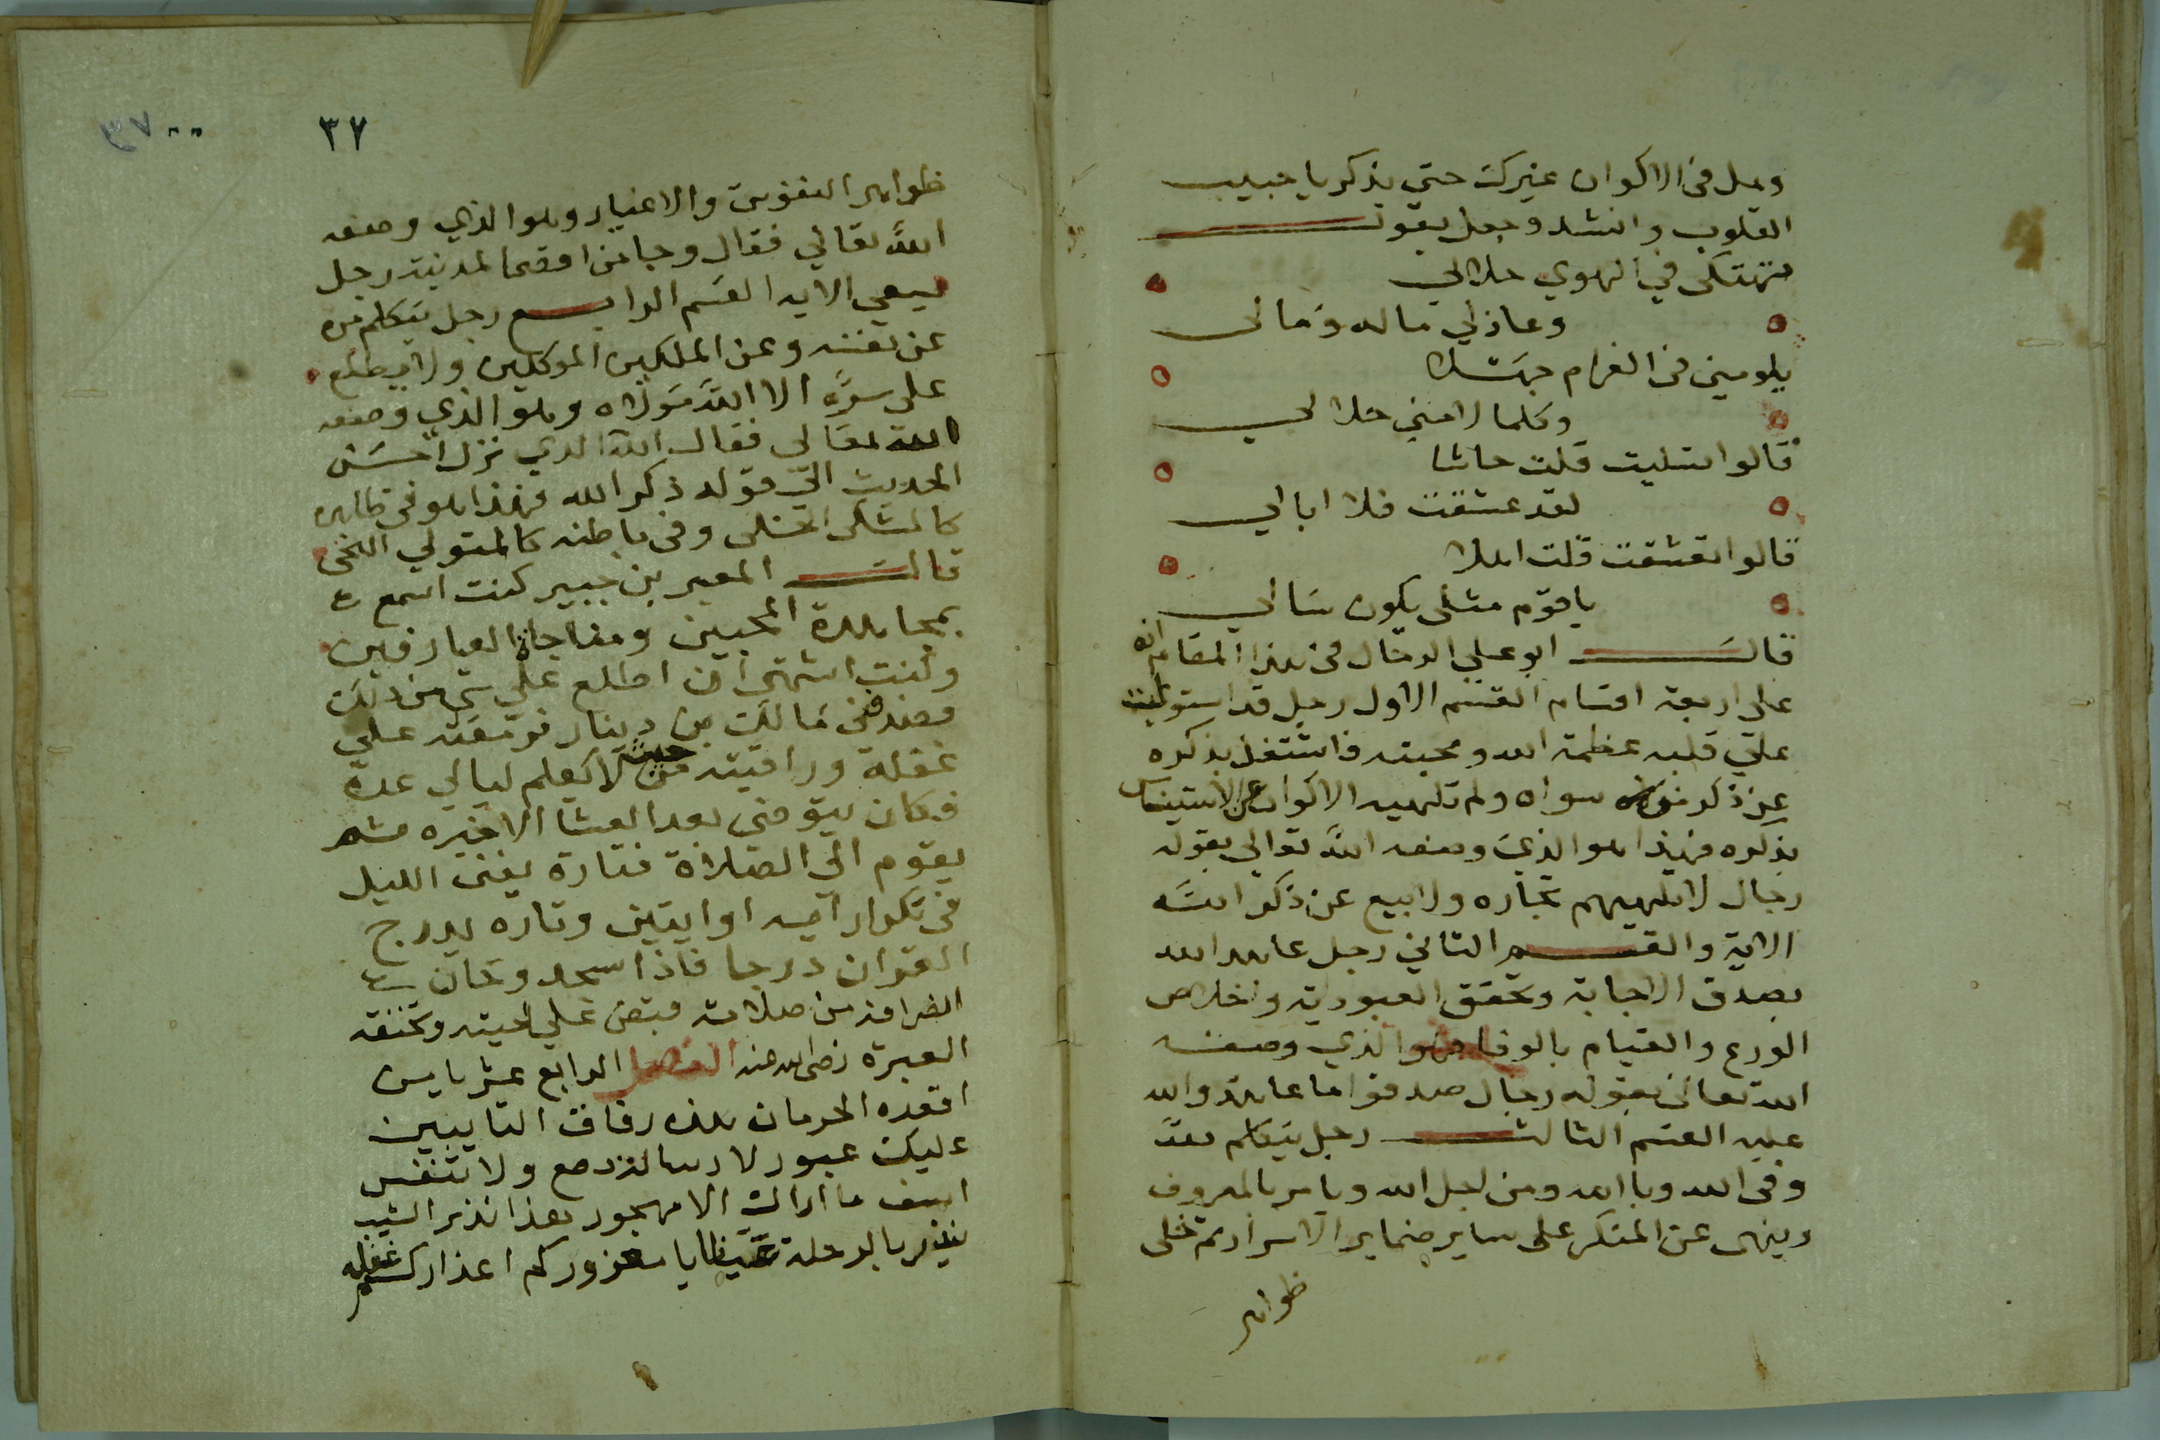 وهل في الاكوان غيرك حتي يذكر يا حبيب
القلوب وانشد وجعل يقول
تهتكي في الهوي حلالي
وعاذلي ماله ومالي
يلومني في الغرام جهلا
وكلما لامني حلالي
قالوا تسليت قلت حاشا
لقد عشقت فلا ابالي
قالوا تعشقت قلت اهلا
يا قوم مثلي يكون سالي
قال ابو علي الدقاق في هذا المقام انه
على اربعة اقسام القسم الاول رجل قد استولت
علي قلبه عظمة الله ومحبته فاشتغل بذكره
عن ذكر سواه ولم تلهيه الاكوان عن الاستيناس
بذكره فهذا هو الذي وصفه الله تعالي بقوله
رجال لا تلهيهم تجاره ولا بيع عن ذكر الله
الاية والقسم الثاني رجل عاهد الله
بصدق الاجابة وتحقق العبودية واخلاص
الورع والقيام بالوفا وهو الذي وصفه
الله تعالى بقوله رجال صدقوا ما عاهدوا الله
عليه القسم الثالث رجل يتكلم لله
وفي الله وبا الله ومن اجل الله ويامر بالمعروف
وينهى عن المنكر على ساير ضماير الاسرار ثم تخلى
ظواهر
٣٧
٣٧
ظواهر النفوس والاغيار وهو الذي وصفه
الله تعالي فقال وجا من اقصا المدينة رجل
يسعي الايه القسم الرابع رجل يتكلم سره
عن نفسه وعن الملكين الموكلين ولا يطلع
على سره الا الله مولاه وهو الذي وصفه
الله تعالي فقال الله الذي نزل احسن
الحديث الي قوله ذكر الله فهذا هو في ظاهره
وفي باطنه كالمتولي
قال المغير بن حبيب كنت اسمع
بمجاهدة المحبين ومناجاة العارفين
وكنت اشتهي ان اطلع علي شي من ذلك
فقصدت مالك بن دينار فرمقته علي
غفلة وراقبته من حيث لا يعلم ليالي عدة
فكان يتوضي بعد العشا الاخيره ثم
يقوم الي الصلاة فتارة يفني الليل
في تكرار آيه او ايتين وتاره يدرج
القران درجا فاذا سجد وحان
انصرافه من صلاته قبض علي لحيته وخنقته
العبرة رضي الله عنه الفصل الرابع عشر يا من
اقعده الحرمان هذه رفاق التايبين
عليك عبور لا رسالة دمع ولا تنفس
اسف ما اراك الا مهجور هذا نذير الشيب
ينذر بالرحلة يا مغرور كم اعذار كم غفله